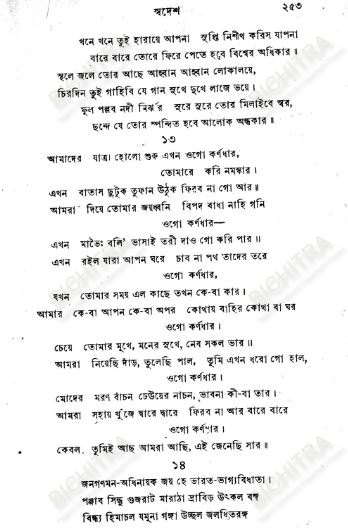 স্বদেশ ২৫৩
খনে খনে তুই হারায়ে আপনা সুপ্তি নিশীথ করিস যাপনা
বারে বারে তোরে ফিরে পেতে হবে বিশ্বের অধিকার॥
স্থলে জলে তোর আছে আহ্বান আহ্বান লোকালয়ে,
চিরদিন তুই গাহিবি যে গান সুখে দুখে লাজে ভয়ে।
ফুল পল্লব নদী নির্ঝর সুরে সুরে তোর মিলাইবে স্বর,
ছন্দে যে তোর স্পন্দিত হবে আলোক অন্ধকার॥
১৩
আমাদের যাত্রা হোলো শুরু এখন ওগো কর্ণধার,
তোমারে করি নমস্কার।
এখন বাতাস ছুটুক তুফান উঠুক ফিরব না গো আর॥
আমরা দিয়ে তোমার জয়ধ্বনি বিপদ বাধা নাহি গনি
ওগো কর্ণধার—
এখন মাভৈঃ বলি' ভাসাই তরী দাও গো করি পার॥
এখন রইল যারা আপন ঘরে চাব না পথ তাদের তরে
ওগো কর্ণধার,
যখন তোমার সময় এল কাছে তখন কে-বা কার।
আমার কে-বা আপন কে-বা অপর কোথায় বাহির কোথা বা ঘর
ওগো কর্ণধার।
চেয়ে তোমার মুখে, মনের সুখে, নেব সকল ভার॥
আমরা নিয়েছি দাঁড়, তুলেছি পাল, তুমি এখন ধরো গো হাল,
ওগো কর্ণধার।
মোদের মরণ বাঁচন ঢেউয়ের নাচন, ভাবনা কী-বা তার।
আমরা সহায় খুঁজে দ্বারে দ্বারে ফিরব না আর বারে বারে
ওগো কর্ণধার।
কেবল তুমিই আছ আমরা আছি, এই জেনেছি সার॥
১৪
জনগণমন-অধিনায়ক জয় হে ভারত-ভাগ্যবিধাতা।
পঞ্জাব সিন্ধু গুজরাট মারাঠা দ্রাবিড় উৎকল বঙ্গ
বিন্ধ্য হিমাচল যমুনা গঙ্গা উচ্ছল জলধিতরঙ্গ
BICHITRA